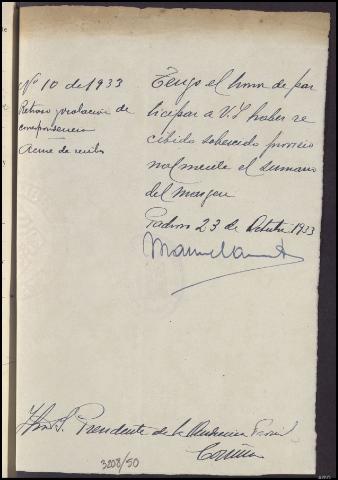 Nº 10 de 1933
Retraso prolacion de
correspondencia
Acuse de recibo
Tengo el honor de par
ticipar a V.S. haber re
cibido sobreseido provisio
nalmente el sumario
del margen
Padron 23 de Octubre 1933
Ilmo. S. Presidente de la Audiencia Provincial
Coruña
3208/50